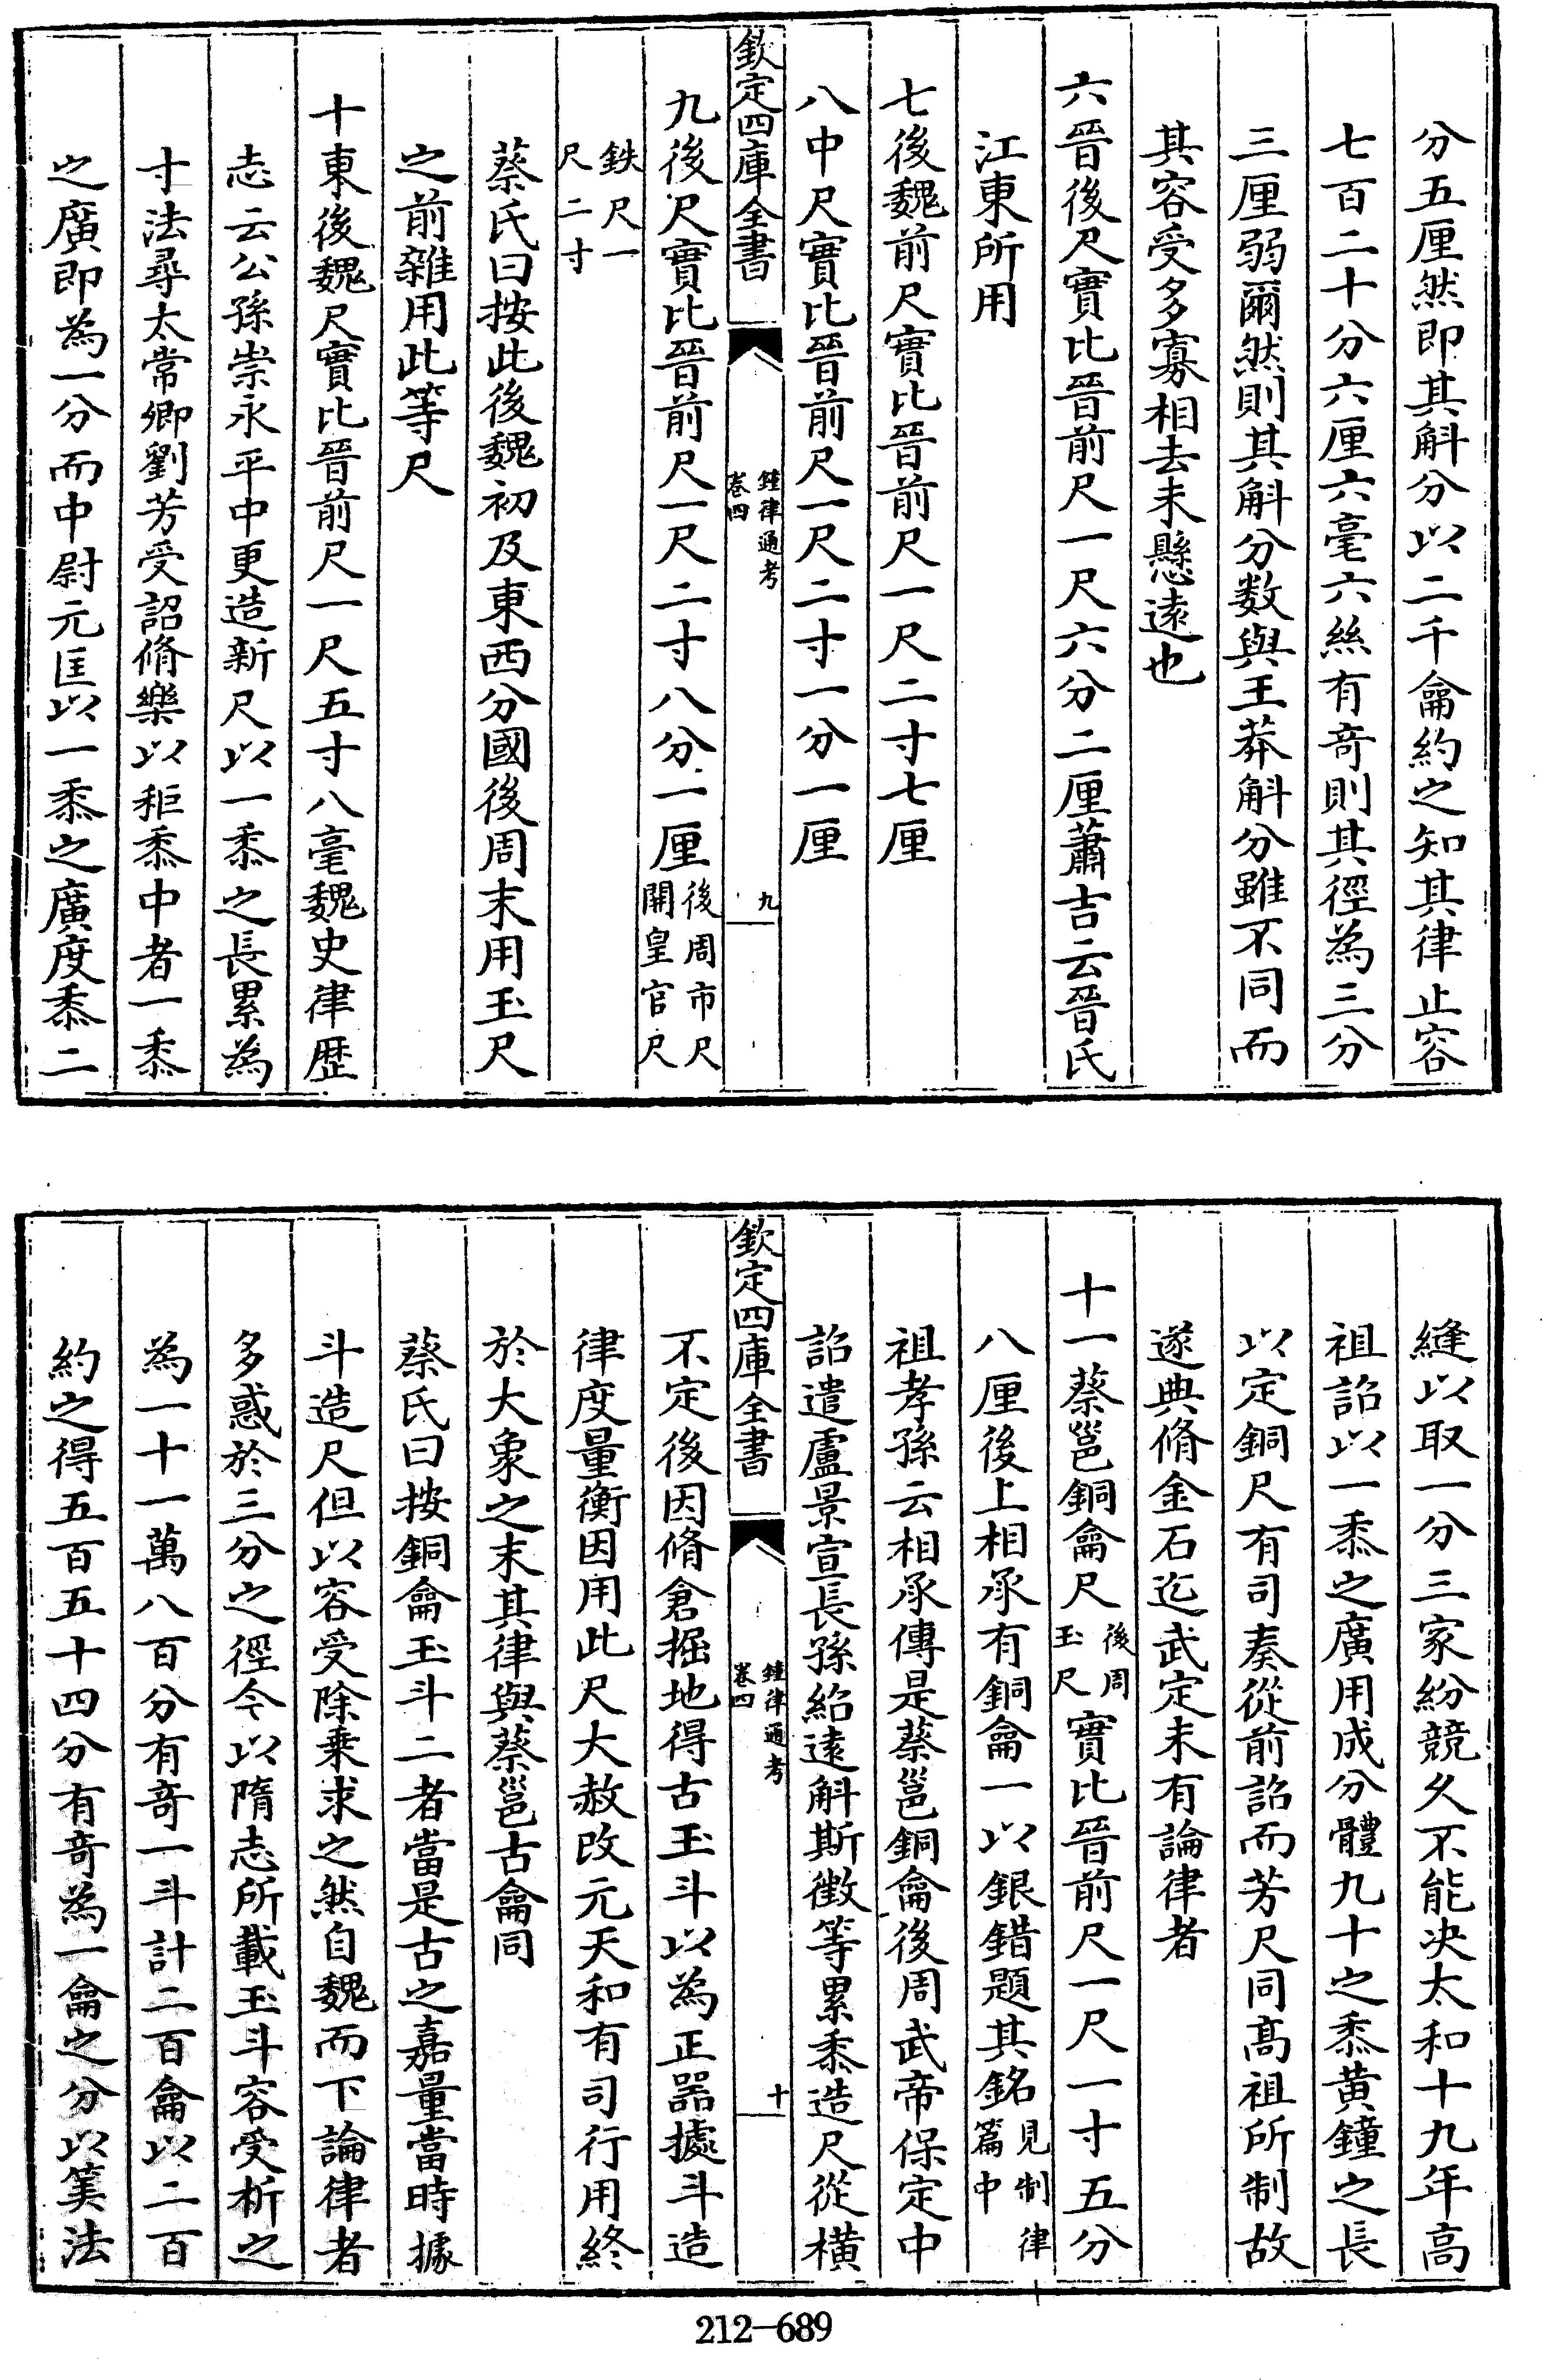 分五厘然即其斛分以二千龠約之知其律止容
七百二十分六厘六毫六絲有奇則其徑為三分
三厘弱爾然則其斛分數與王莽斛分雖不同而
其容受多寡相去未懸遠也
六晉後尺實比晉前尺一尺六分二厘蕭吉云晉氏
江東所用
七後魏前尺實比晉前尺一尺二寸七厘
八中尺實比晉前尺一尺二寸一分一厘
欽定四庫全書
鐘律通考
卷四
九
九後尺實比晉前尺一尺二寸八分一厘後周市尺
開皇官尺
鉄尺一
尺二寸
蔡氏曰按此後魏初及東西分國後周末用玉尺
之前雜用此等尺
十東後魏尺實比晉前尺一尺五寸八毫魏史律歴
志云公孫崇永平中更造新尺以一黍之長累為
寸法尋太常卿劉芳受詔脩樂以秬黍中者一黍
之廣即為一分而中尉元匡以一黍之廣度黍二
縫以取一分三家紛競久不能决太和十九年高
祖詔以一黍之廣用成分體九十之黍黄鐘之長
以定銅尺有司奏從前詔而芳尺同高祖所制故
遂典脩金石迄武定未有論律者
十一蔡邕銅龠尺後周
玉尺實比晉前尺一尺一寸五分
八厘後上相承有銅龠一以銀錯題其銘見制律
篇中
祖孝孫云相承傳是蔡邕銅龠後周武帝保定中
詔遣盧景宣長孫紹遠斛斯徵等累黍造尺從横
欽定四庫全書
鐘律通考
卷四
十
不定後因脩倉掘地得古玉斗以為正器據斗造
律度量衡因用此尺大赦改元天和有司行用終
於大象之末其律與蔡邕古龠同
蔡氏曰按銅龠玉斗二者當是古之嘉量當時據
斗造尺但以容受除乗求之然自魏而下論律者
多惑於三分之徑今以隋志所載玉斗容受析之
為一十一萬八百分有奇一斗計二百龠以二百
約之得五百五十四分有奇為一龠之分以筭法
212-689